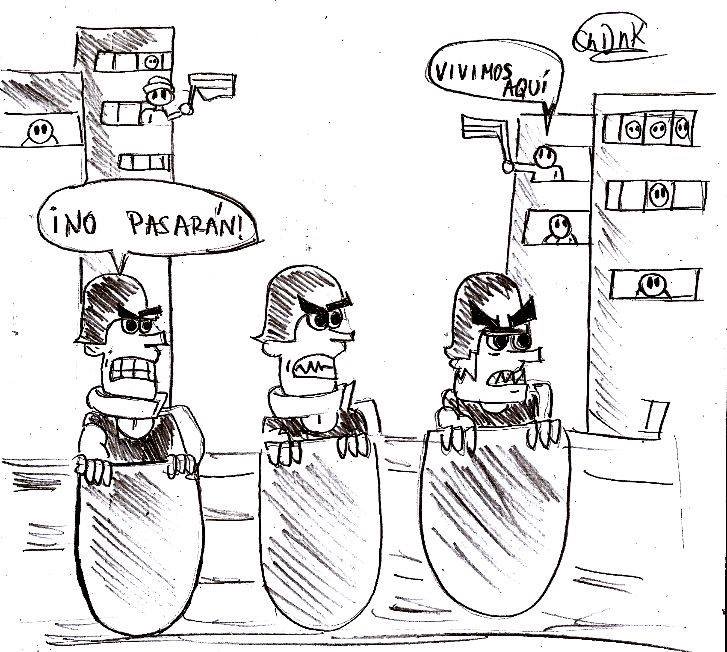 VIVIMOS
AQUÍ
¡NO PASARÁN!